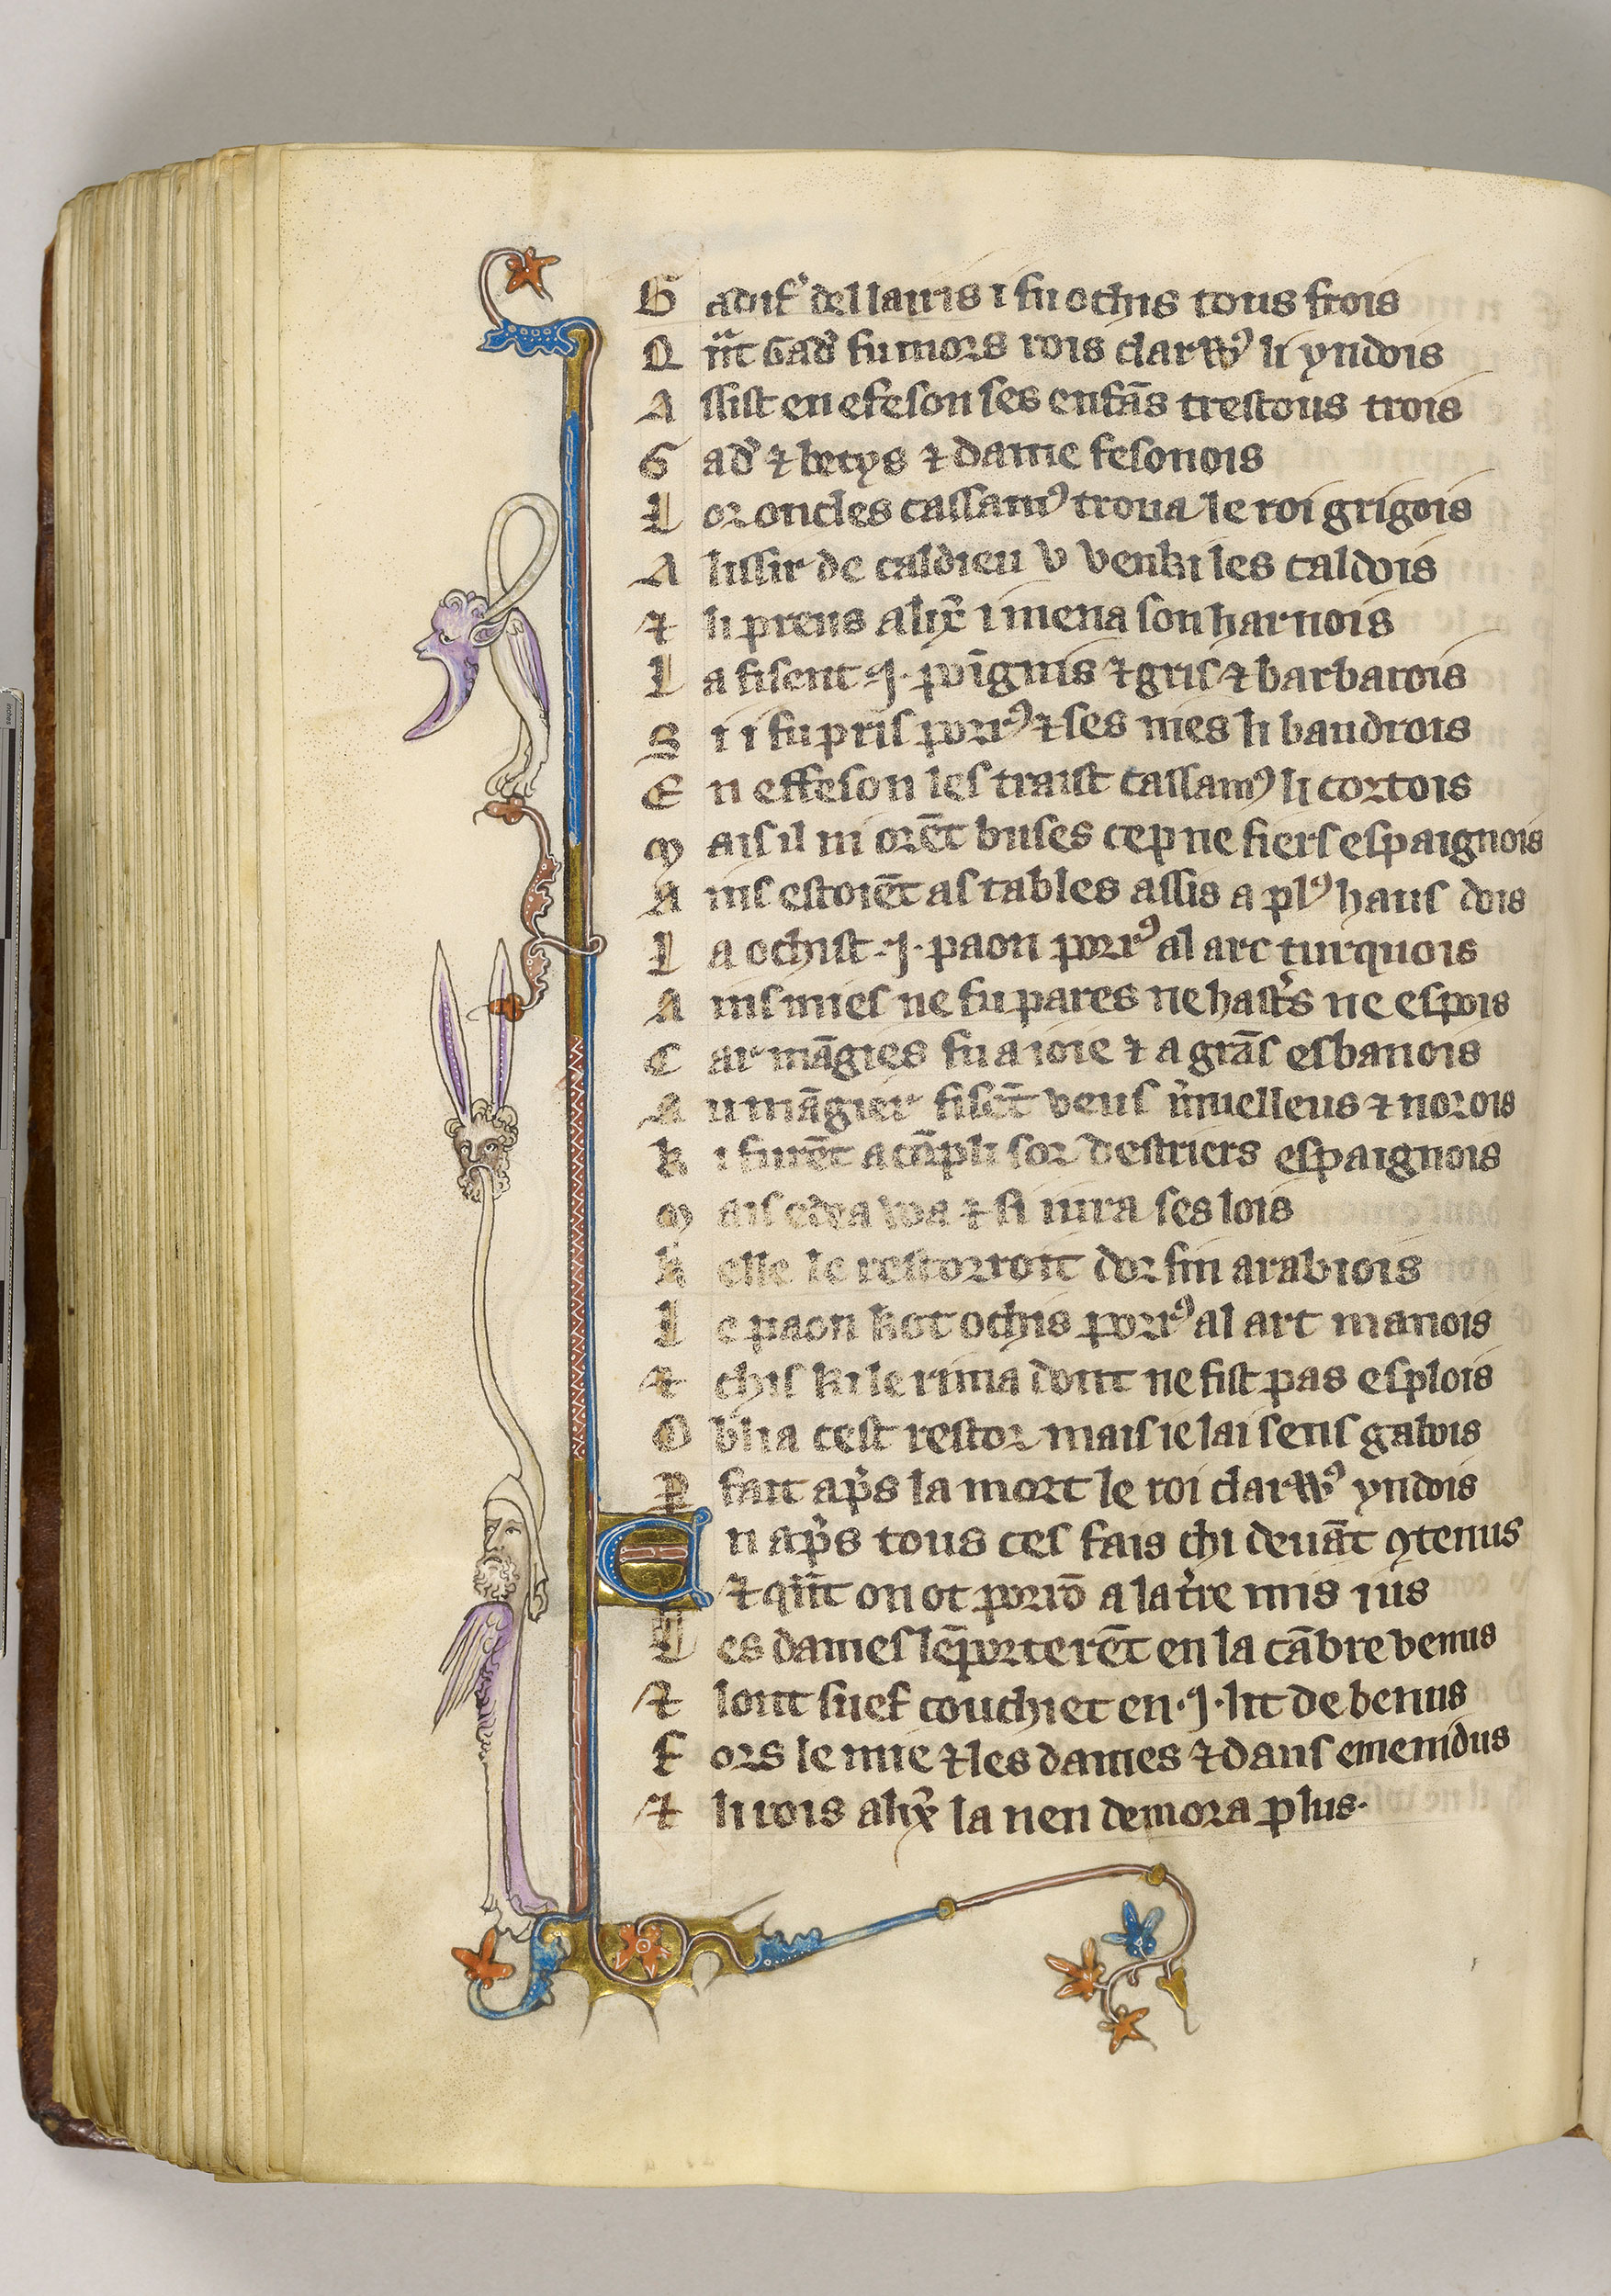 G adif᾽ del lairis i fu ochis tous frois
Q n̄t Gad᾽ fu mors rois clarwꝰ li yndois
A ssist en efeson ses enfās trestous trois
G ad᾽ ⁊ betys ⁊ dame fesonois
L or oncles cassamꝰ troua le roi grigois
A lissir de caldieu v venki les caldois
⁊ li preus alix̄ i mena son harnois
L a fisent .j. poīgnis ⁊ gris ⁊ barbarois
S i i fu pris porrꝰ ⁊ ses nies li baudrois
E n effeson les traist cassamꝰ li cortois
M ais il ni orēt buies cep ne fiers espaignois
A ins estoiēt as tables assis a plꝰ haus dois
L a ochist .j. paon porrꝰ al arc turquois
A ins mies ne fu pares ne hast᾽s ne espois
C ar māgies fu a ioie ⁊ a grās esbanois
A u māgier fisēt veus m᾽uelleus ⁊ norois
K i furēt acōpli sor destriers espaignois
M ais edea voa ⁊ si iura ses lois
K elle le restorroit dor fin arabiois
L e paon kot ochis porrꝰ al arc manois
⁊ chis ki le rima dont ne fist pas esplois
O blia cest restor mais ie lai sens gabois
R fait ap᾽s la mort le roi clarwꝰ yndois
E n ap᾽s tous ces fais chi deuāt ꝯtenus
⁊ qn̄t on ot porrō a la t᾽re mis ius
L es dames lēporterēt en la cābre venus
⁊ lont suef couchiet en .j. lit de benus
F ors le mie ⁊ les dames ⁊ dans emenidus
⁊ li rois alix̄ la nen demora plus.